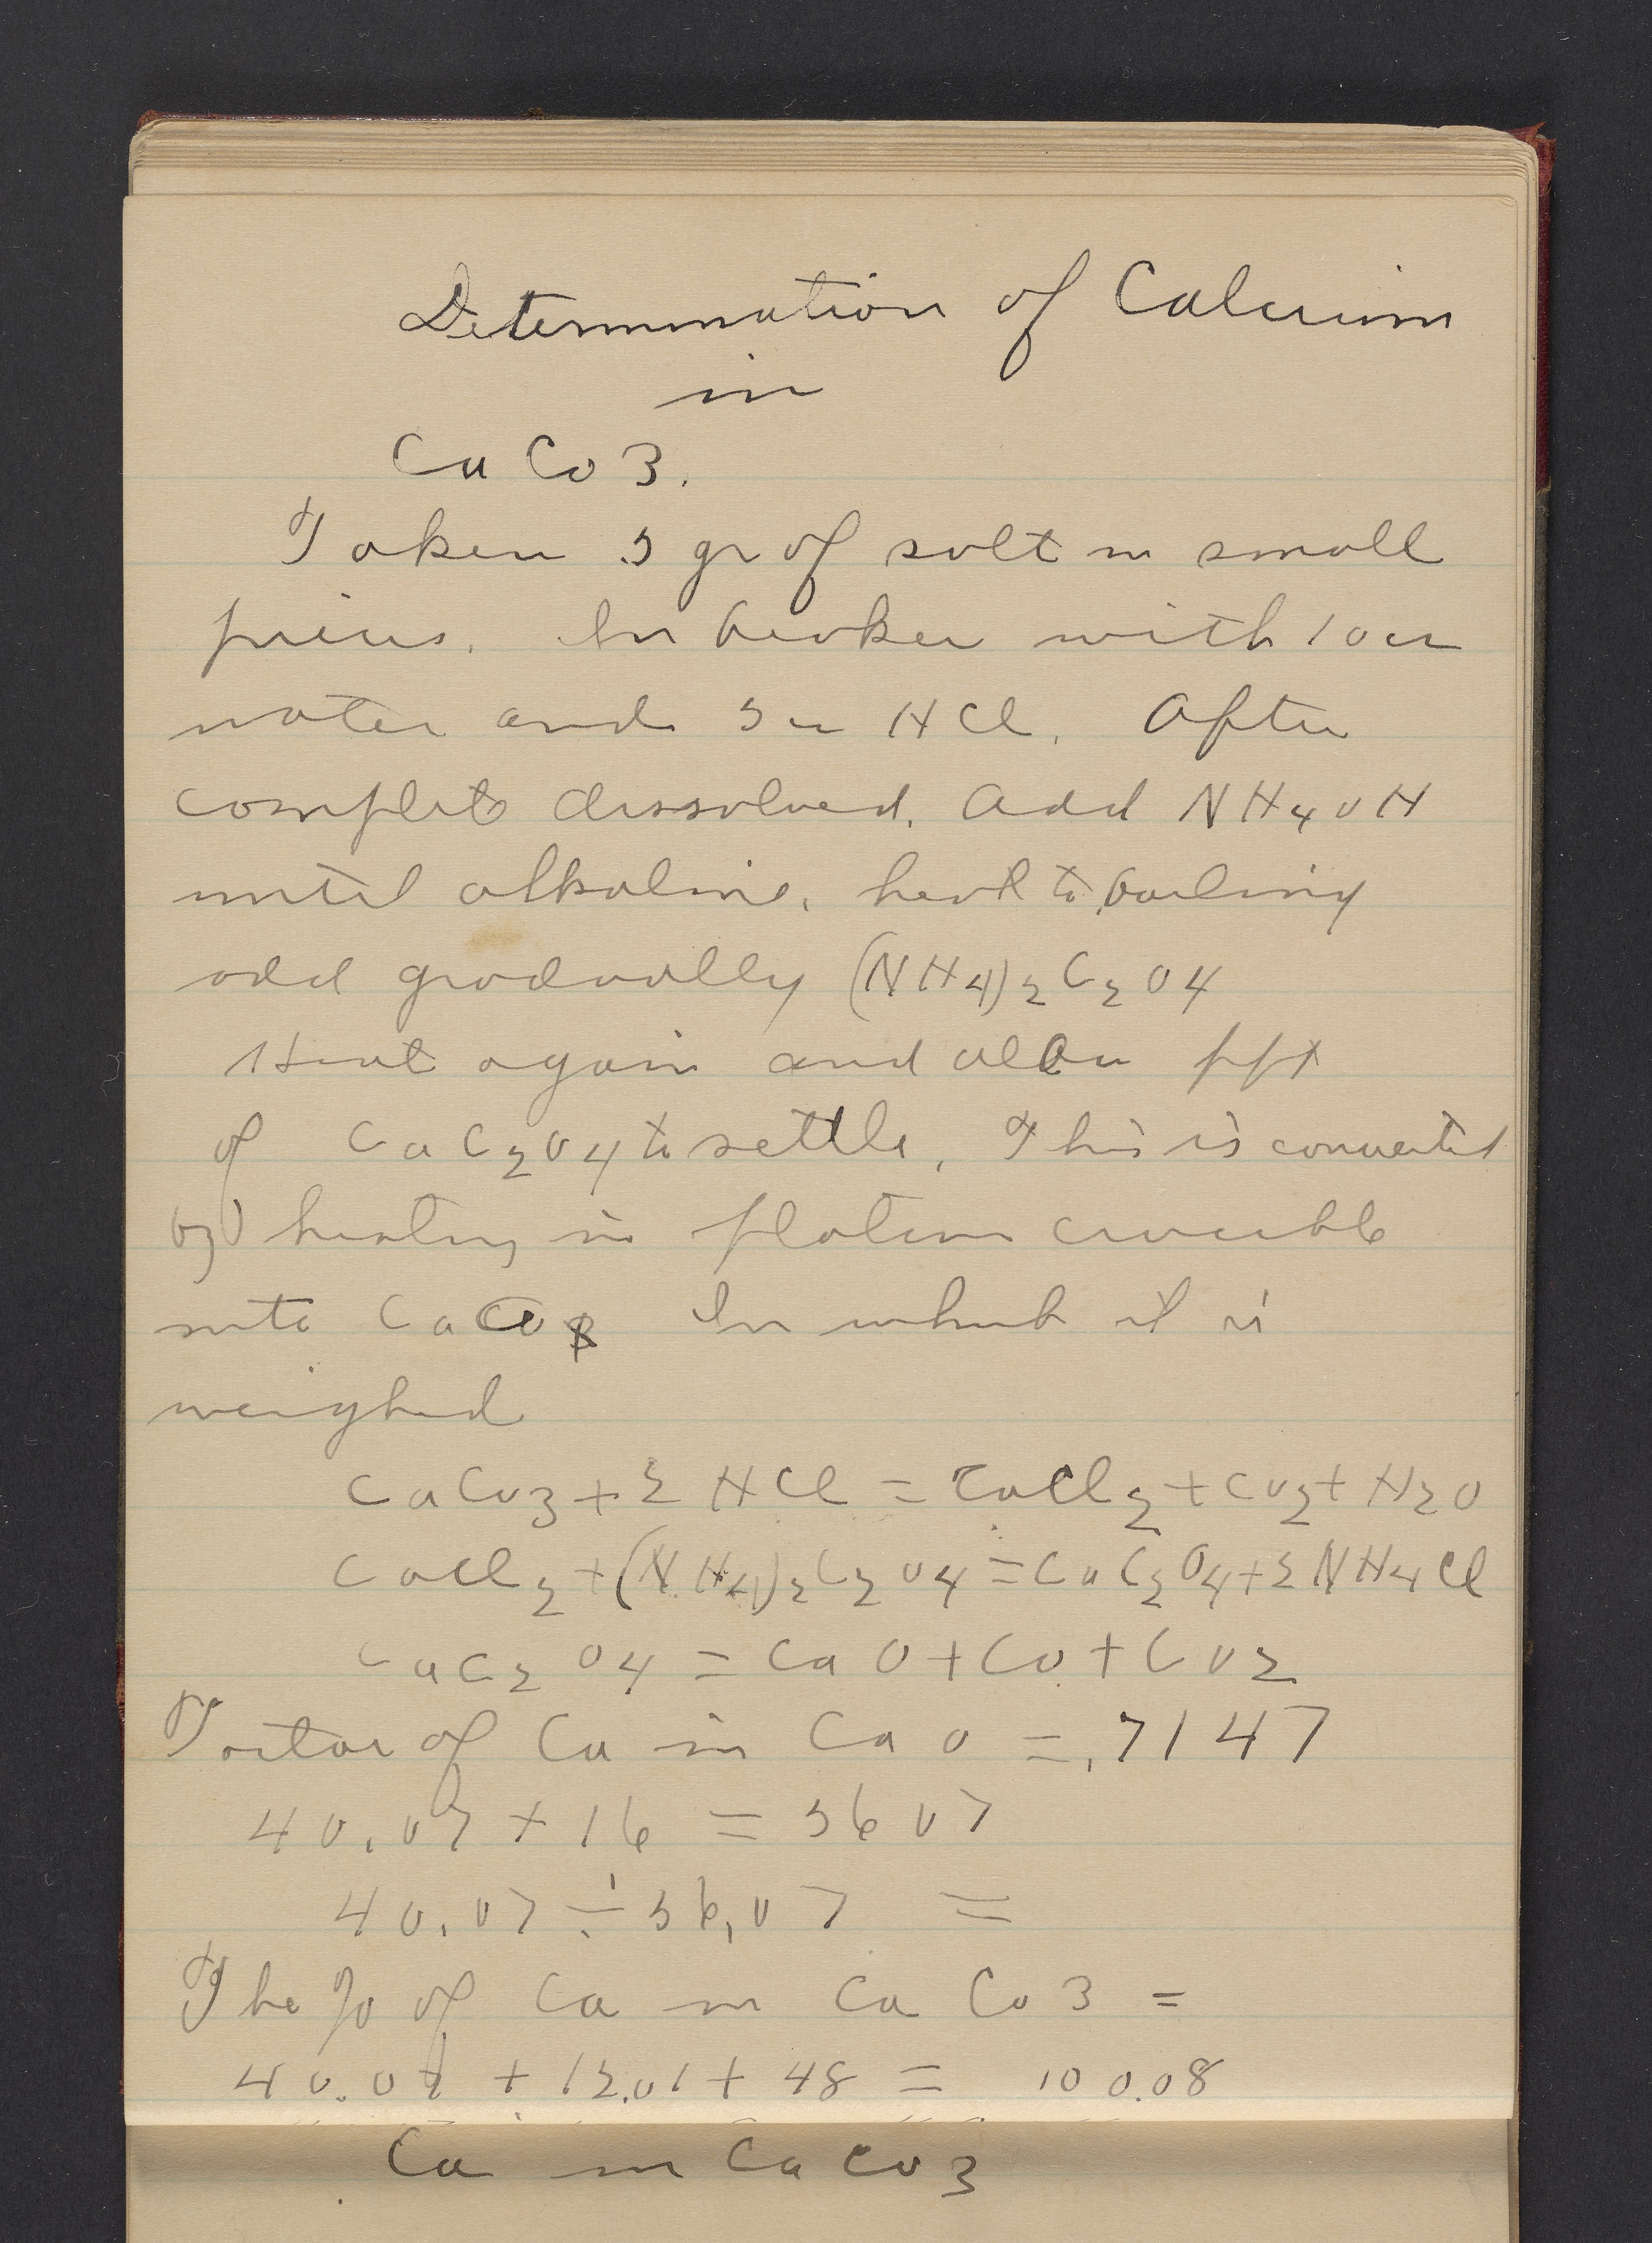 Determination of Calcium
in
CaCo3.
Taken .5 gr of salt in small
pieces. In beaker with 10 cc
water and 5 cc HCl. After
complete dissolved. Add NH4OH
until alkaline. heat to boiling
add gradually (NH4)2C2O4
Heat again and allow ppt
of CaC2O4 to settle. This is converted
by heating in platinum crucible
into CaO In which it is
weighed
CaCO3 + 2 HCl = CaCl2 + CO2 + H2O
CaCl2 + (NH4)2C2O4 = CaC2O4 + 2 NH4Cl
CaC2O4 = CaO + CO + CO2
Factor of Ca in CaO = .7147
40.07 + 16 = 56 07
40.07 ÷ 56.07 =
The % of Ca in CaCo3 =
40.07 + 12.01 + 48 = 100.08
Ca in CaCO3